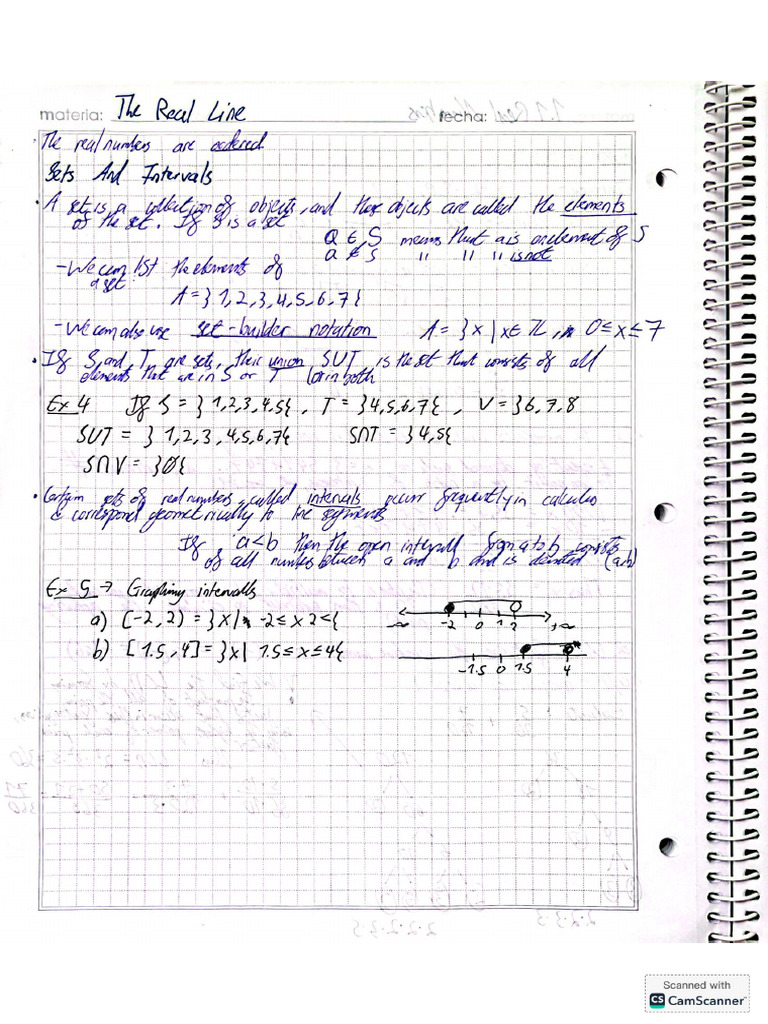 materia: The Real Line fecha:
The real numbers are ordered
Sets And Intervals
• A set is a collection of objects, and these objects are called the elements
of the set. If S is a set
a ∈ S means that a is an element of S
a ∉ S " " " is not
- We can list the elements of
a set:
A = } 1, 2, 3, 4, 5, 6, 7 {
- We can also use set-builder notation A = } x | x ∈ ℤ, 0 ≤ x ≤ 7
• If S and T are sets, their union S∪T is the set that consists of all
elements that are in S or T (or in both
Ex 4 If S = } 1, 2, 3, 4, 5 { , T = } 4, 5, 6, 7 { , V = } 6, 7, 8
S∪T = } 1, 2, 3, 4, 5, 6, 7 { S∩T = } 4, 5 {
S∩V = } Ø {
• Certain sets of real numbers, called intervals occur frequently in calculus
& correspond geometrically to line segments
If a < b then the open intervall from a to b consists
of all numbers between a and b and is denoted (a,b)
Ex 5 → Graphing intervalls
a) [-2, 2) = } x | -2 ≤ x 2 < {
-∞ -2 0 1 2 ∞
b) [1.5, 4] = } x | 1.5 ≤ x ≤ 4 {
-1.5 0 1.5 4
Scanned with
CS CamScanner